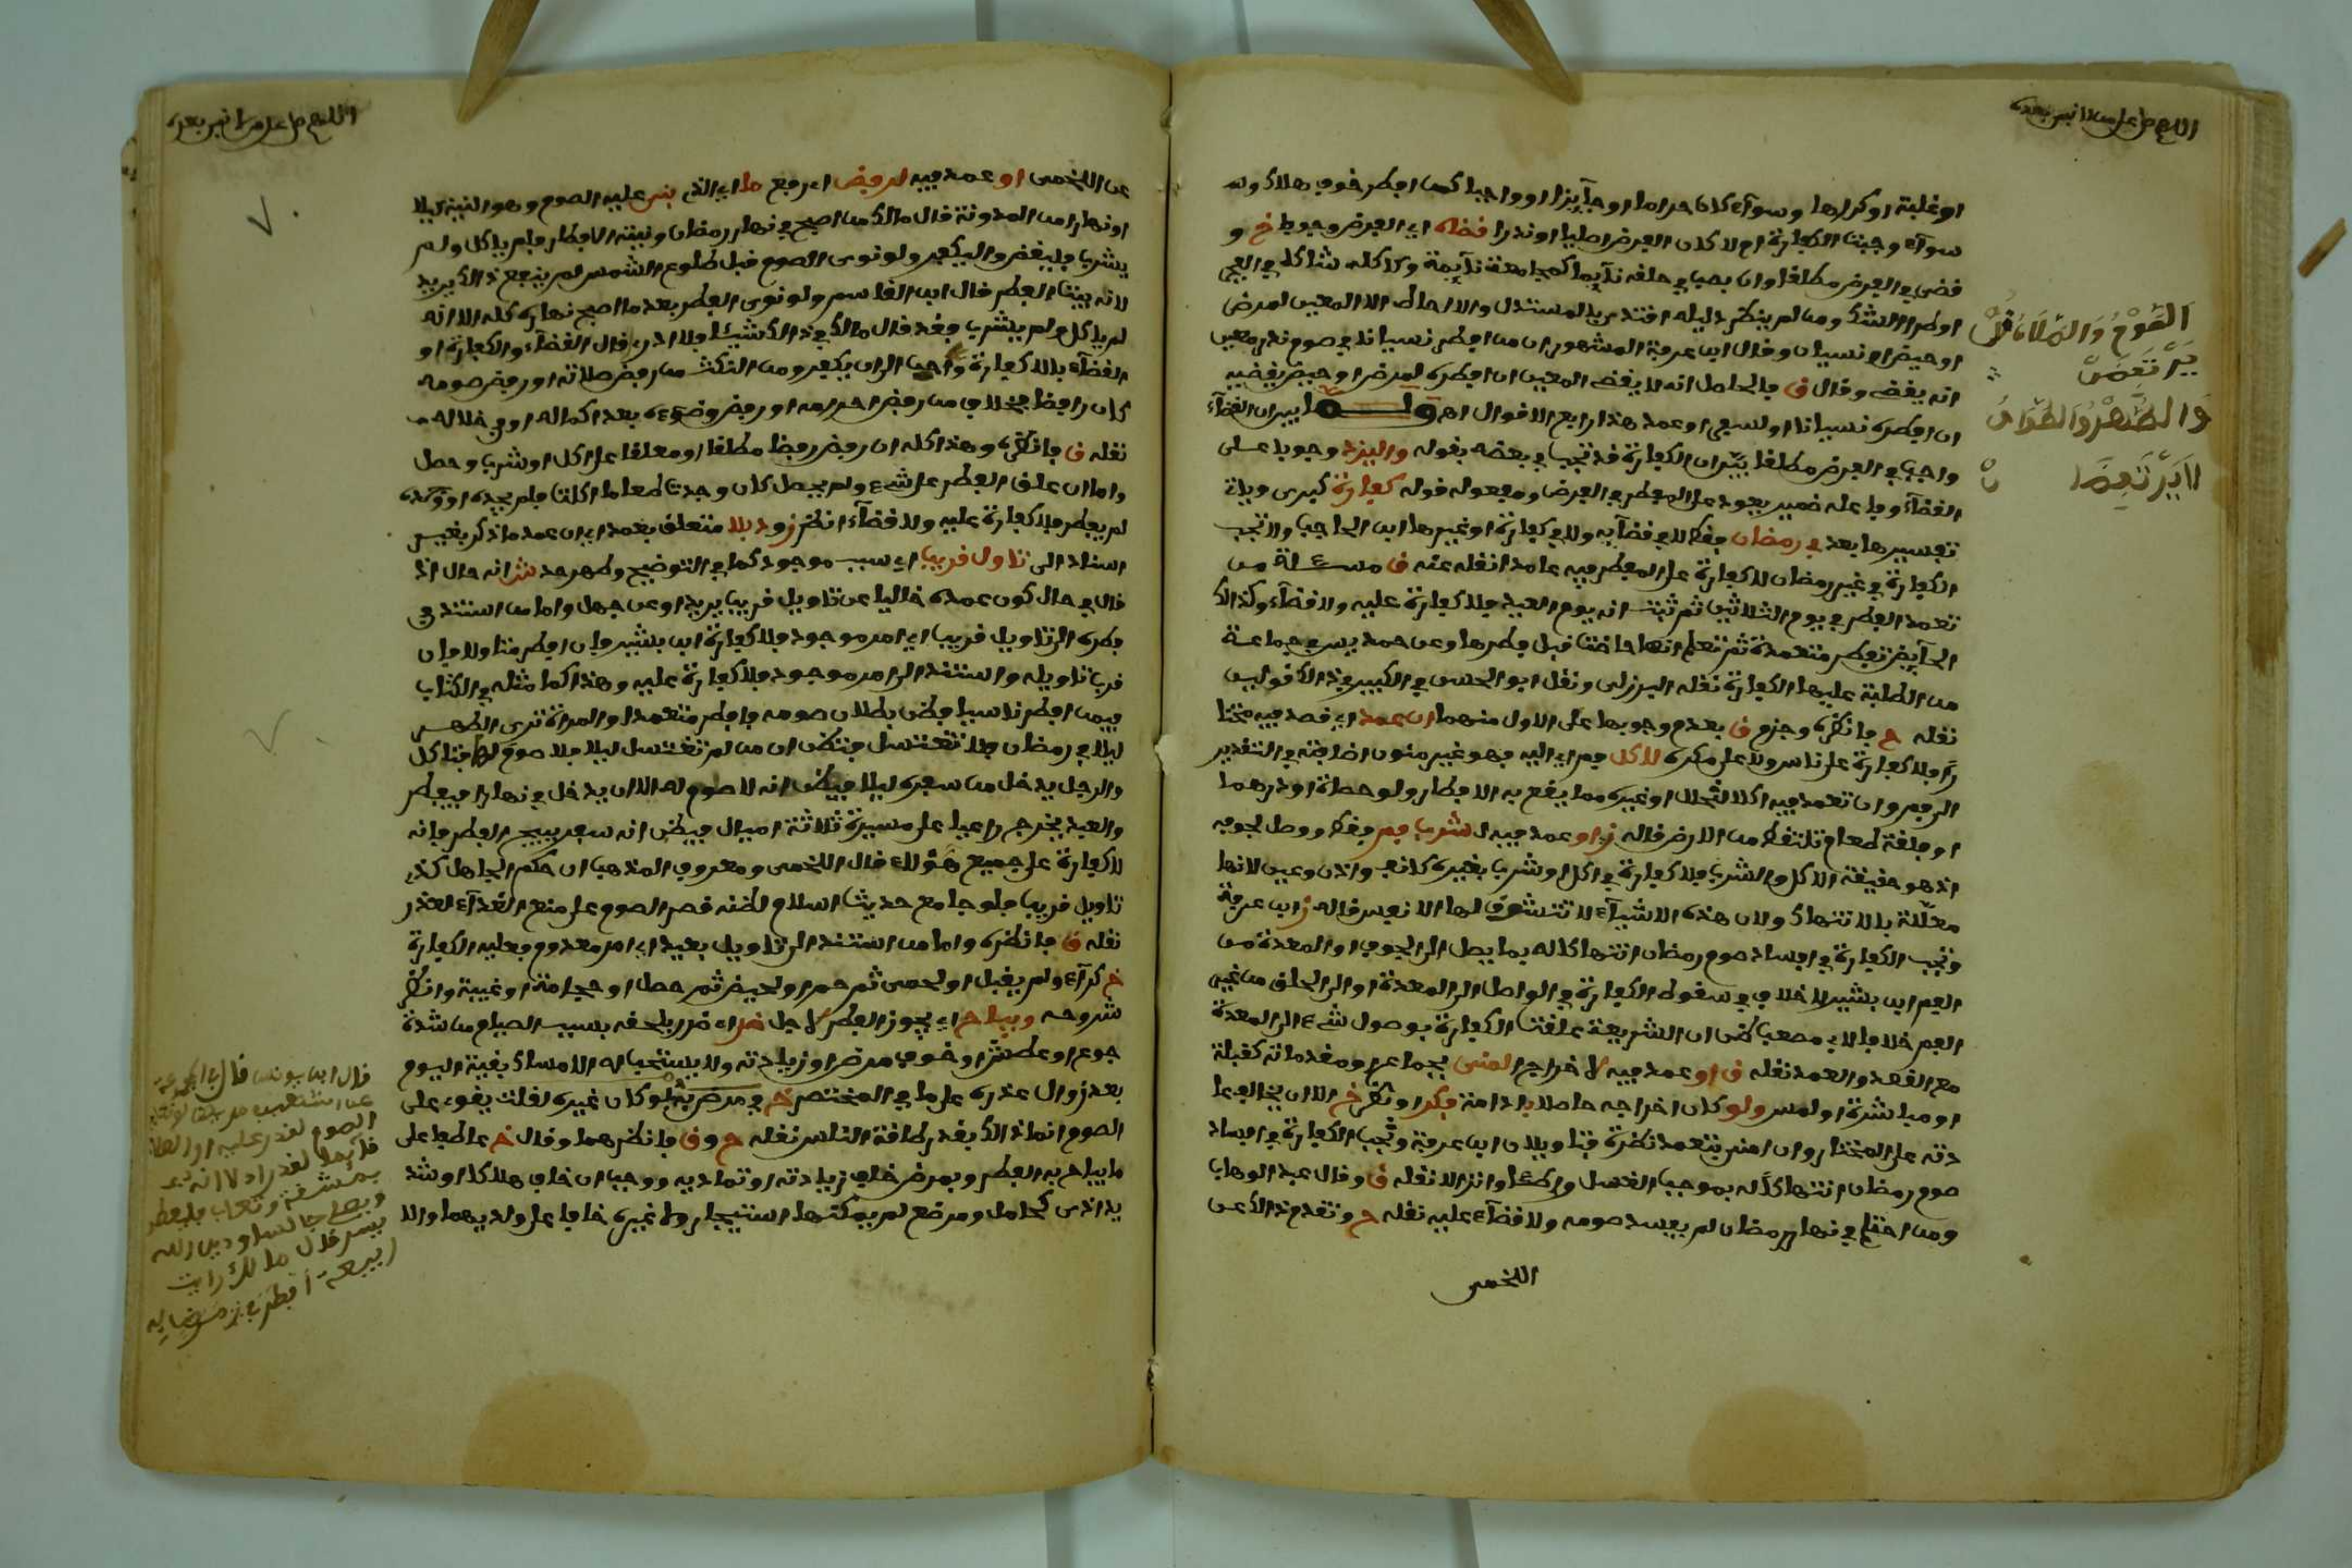 اللهم صل على من لا نبي بعده
او غلبة او كرها وسواء كان حراما او جايزا او واجبا كمن افطر خوف هلاك وله
سواء وجبت الكفارة ام لا كان الفرض اصليا او نذرا قضاه اي الفرض وجوبا خ و
قضى في الفرض مطلقا وان بصب في حلقه نايما كمجامعة نايمة وكاكله شاكا في الفجر
او طرا الشك ومن لم ينظر دليله اقتدى بالمستدل والا احتاط الا المعين لمرض
او حيض او نسيان وقال ابن عرفة المشهور ان من افطر نسيانا في صوم نذر معين
انه يقضي وقال ق فالحاصل انه لا يقضي المعين ان افطره لمرض او حيض ويقضيه
ان افطره نسيانا او لسعي او عمد هذا رابع الاقوال اه ولما بين ان القضاء
واجب في الفرض مطلقا بين ان الكفارة قد تجب في بعضه بقوله وليزد وجوبا على
القضاء وفاعله ضمير يعود على المفطر في الفرض ومفعوله قوله كفارة كبرى وياتي
تفسيرها بعد في رمضان فقط لا في قضائه ولا في كفارة او غيرها ابن الحاجب ولا تجب
الكفارة في غير رمضان لا كفارة على المفطر فيه عامدا نقله عنه ق مسئلة من
تعمد الفطر في يوم الثلاثين ثم ثبت انه يوم العيد فلا كفارة عليه ولا قضاء وكذلك
الحايض تفطر متعمدة ثم تعلم انها حاضت قبل فطرها وعن حمديس في جماعة
من الطلبة عليها الكفارة نقله البرزلي ونقل ابو الحسن في الكبير في ذلك قولين
نقله ح فانظره وجزم ق بعدم وجوبها على الاول منهما ان عمد اي قصد فيه مختا
را فلا كفارة على ناس ولا على مكره لاكل فم اي اليه فهو غير منون اضافته في التقدير
الى فم وان تعمد فيه اكلا لنخال او غيره مما يقع به الافطار ولو حصاة او درهما
او فلقة طعام تلتقط من الارض قاله ز او عمد فيه لشرب فم فقط ووصل لجوفه
اذ هو حقيقة الاكل والشرب فلا كفارة في اكل او شرب بغيره كانف واذن وعين لانها
معللة بالانتهاك ولان هذه الاشياء لا تتشوق لها الانفس قاله ز ابن عرفة
وتجب الكفارة في افساد صوم رمضان انتهاكا له بما يصل الى الجوف او المعدة من
الفم ابن بشير لا خلاف في سقوط الكفارة في الواصل الى المعدة او الى الحلق من غير
الفم خلافا لابي مصعب ظن ان الشريعة علقت الكفارة بوصول شيء الى المعدة
مع القصد والعمد نقله ق او عمد فيه لاخراج المني بجماع او مقدماته كقبلة
او مباشرة او لمس ولو كان اخراجه حاصلا بادامة فكر او نظر خ الا ان يخالف عا
دته على المختار وان امنى بتعمد نظرة فتاويلان ابن عرفة وتجب الكفارة في افساد
صوم رمضان انتهاكا له بموجب الغسل وطئا وانزالا نقله ق وقال عبد الوهاب
ومن احتلم في نهار رمضان لم يفسد صومه ولا قضاء عليه نقله ح وتقدم ذلك عن
اللخمي
القوم والصلاة
يرتفض
والطهر والطواف
لا يرتفضا
اللهم صل على من لا نبي بعده
عن اللخمي او عمد فيه لرفض اي رفع ما اي الذي بني عليه الصوم وهو النية ليلا
او نهارا من المدونة قال مالك من اصبح في نهار رمضان ونيته الافطار فلم ياكل ولم
يشرب فليقض وليكفر ولو نوى الصوم قبل طلوع الشمس لم ينفعه ذلك يريد
لانه بيت الفطر قال ابن القاسم ولو نوى الفطر بعد ما اصبح نهاره كله الا انه
لم ياكل ولم يشرب فقد قال مالك في ذلك شيئا ولا ادري قال القضاء والكفارة او
القضاء بلا كفارة واحب الي ان يكفر ومن النكث من رفض صلاته او رفض صومه
كان رافضا بخلاف من رفض احرامه او رفض وضوءه بعد اكماله او في خلاله
نقله ق فانظره وهذا كله ان رفض رفضا مطلقا او معلقا على اكل او شرب وحصل
واما ان علق الفطر على شيء ولم يحصل كان وجدت طعاما اكلت فلم يجده او وجده
لم يفطر فلا كفارة عليه ولا قضاء انظر ز و بلا متعلق بعمد اي ان عمد ما ذكر بغير
استناد الى تاول قريب اي سبب موجود كما في التوضيح وظهر حد نثر انه حال اذ
قال في حال كون عمده خاليا عن تاويل قريب يريد او عن جهل واما من استند في
فطره الى تاويل قريب اي امر موجود فلا كفارة ابن بشير وان افطر متاولا فان
قرب تاويله واستند الى امر موجود فلا كفارة عليه وهذا كما مثله في الكتاب
فيمن افطر ناسيا فظن بطلان صومه فافطر متعمدا والمراة ترى الطهر
ليلا في رمضان فلا تغتسل فتظن ان من لم تغتسل ليلا فلا صوم لها فتاكل
والرجل يدخل من سفره ليلا فيظن انه لا صوم له الا ان يدخل نهارا فيفطر
والعبد يخرج راعيا على مسيرة ثلاثة اميال فيظن انه سفر يبيح الفطر فانه
لا كفارة على جميع هؤلاء قال اللخمي ومعروف المذهب ان حكم الجاهل كذي
تاويل قريب فلو جامع حديث اسلام لظنه قصر الصوم على منع الغذاء لعذر
نقله ق فانظره واما من استند الى تاويل بعيد اي امر معدوم فعليه الكفارة
خ كراء ولم يقبل او لحمى ثم حم او لحيض ثم حصل او حجامة او غيبة وانظر
شروحه ويباح اي يجوز الفطر لاجل ضر اي ضرر يلحقه بسبب الصيام من شدة
جوع او عطش او خوف مرض او زيادته ولا يستحب له الامساك بقية اليوم
بعد زوال عذره على ما في المختصر خ ومرض فلو كان غيره لقلت يقوى على
الصوم انما ذلك بقدر طاقة الناس نقله ح وق فانظرهما وقال خ عاطفا على
ما يباح به الفطر وبمرض خاف زيادته او تماديه ووجب ان خاف هلاكا او شد
يد اذى كحامل ومرضع لم يمكنها استيجار ولا غيره خافا على ولديهما والا
قال ابن يونس قال ابن
الصوم لقدر عليه او الصلاة
قائما لقدر الا انه
بمشقة وتعب فليفطر
ويصلي جالسا ودين الله
يسر قال مالك رايت
ربيعة افطر في مرض به